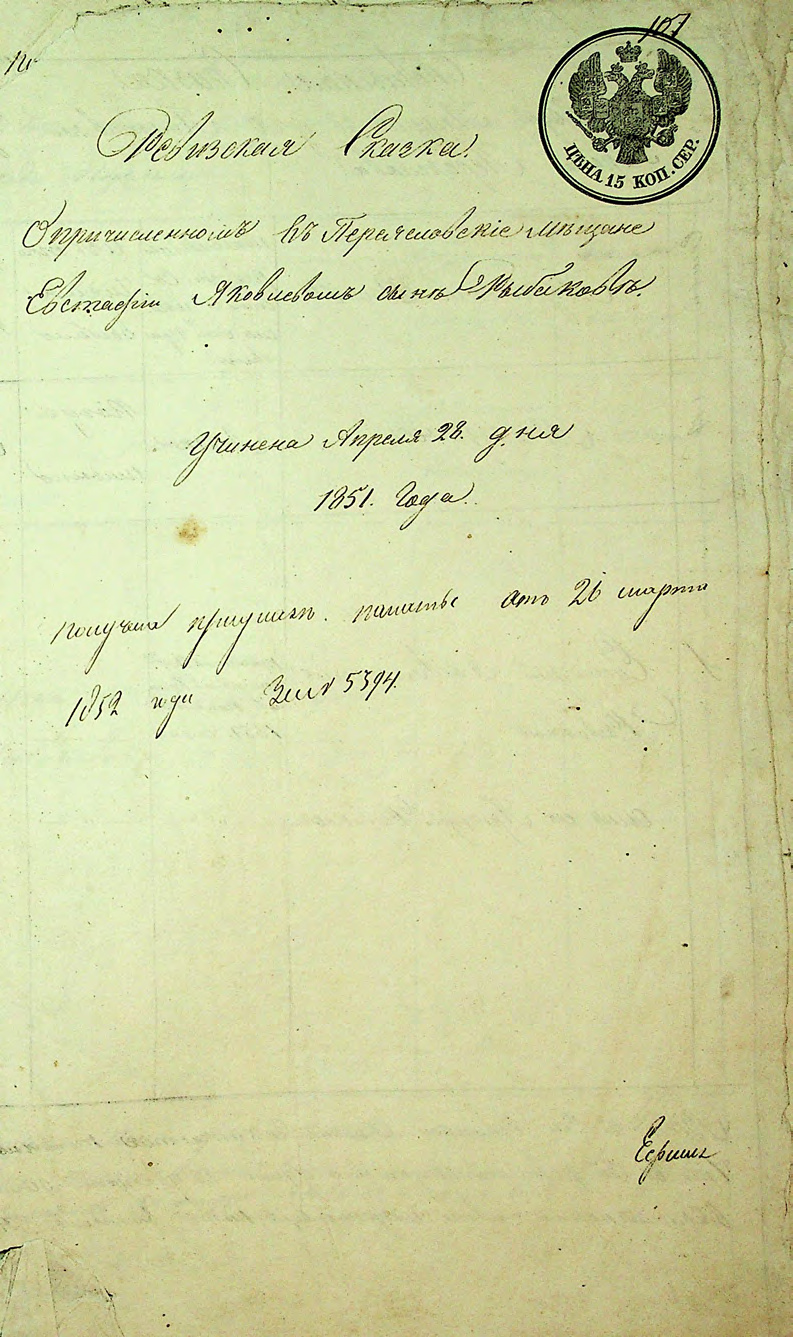 107
ЦѢНА 15 КОП. СЕР.
Ревизская Сказка.
О причисленномъ въ Переяславскіе мѣщане
Евстафіи Яковлевомъ сынѣ Рыбаковѣ.
Учинена Апреля 28. дня
1851. Года.
отъ 26 марта
1852 года За № 5394.